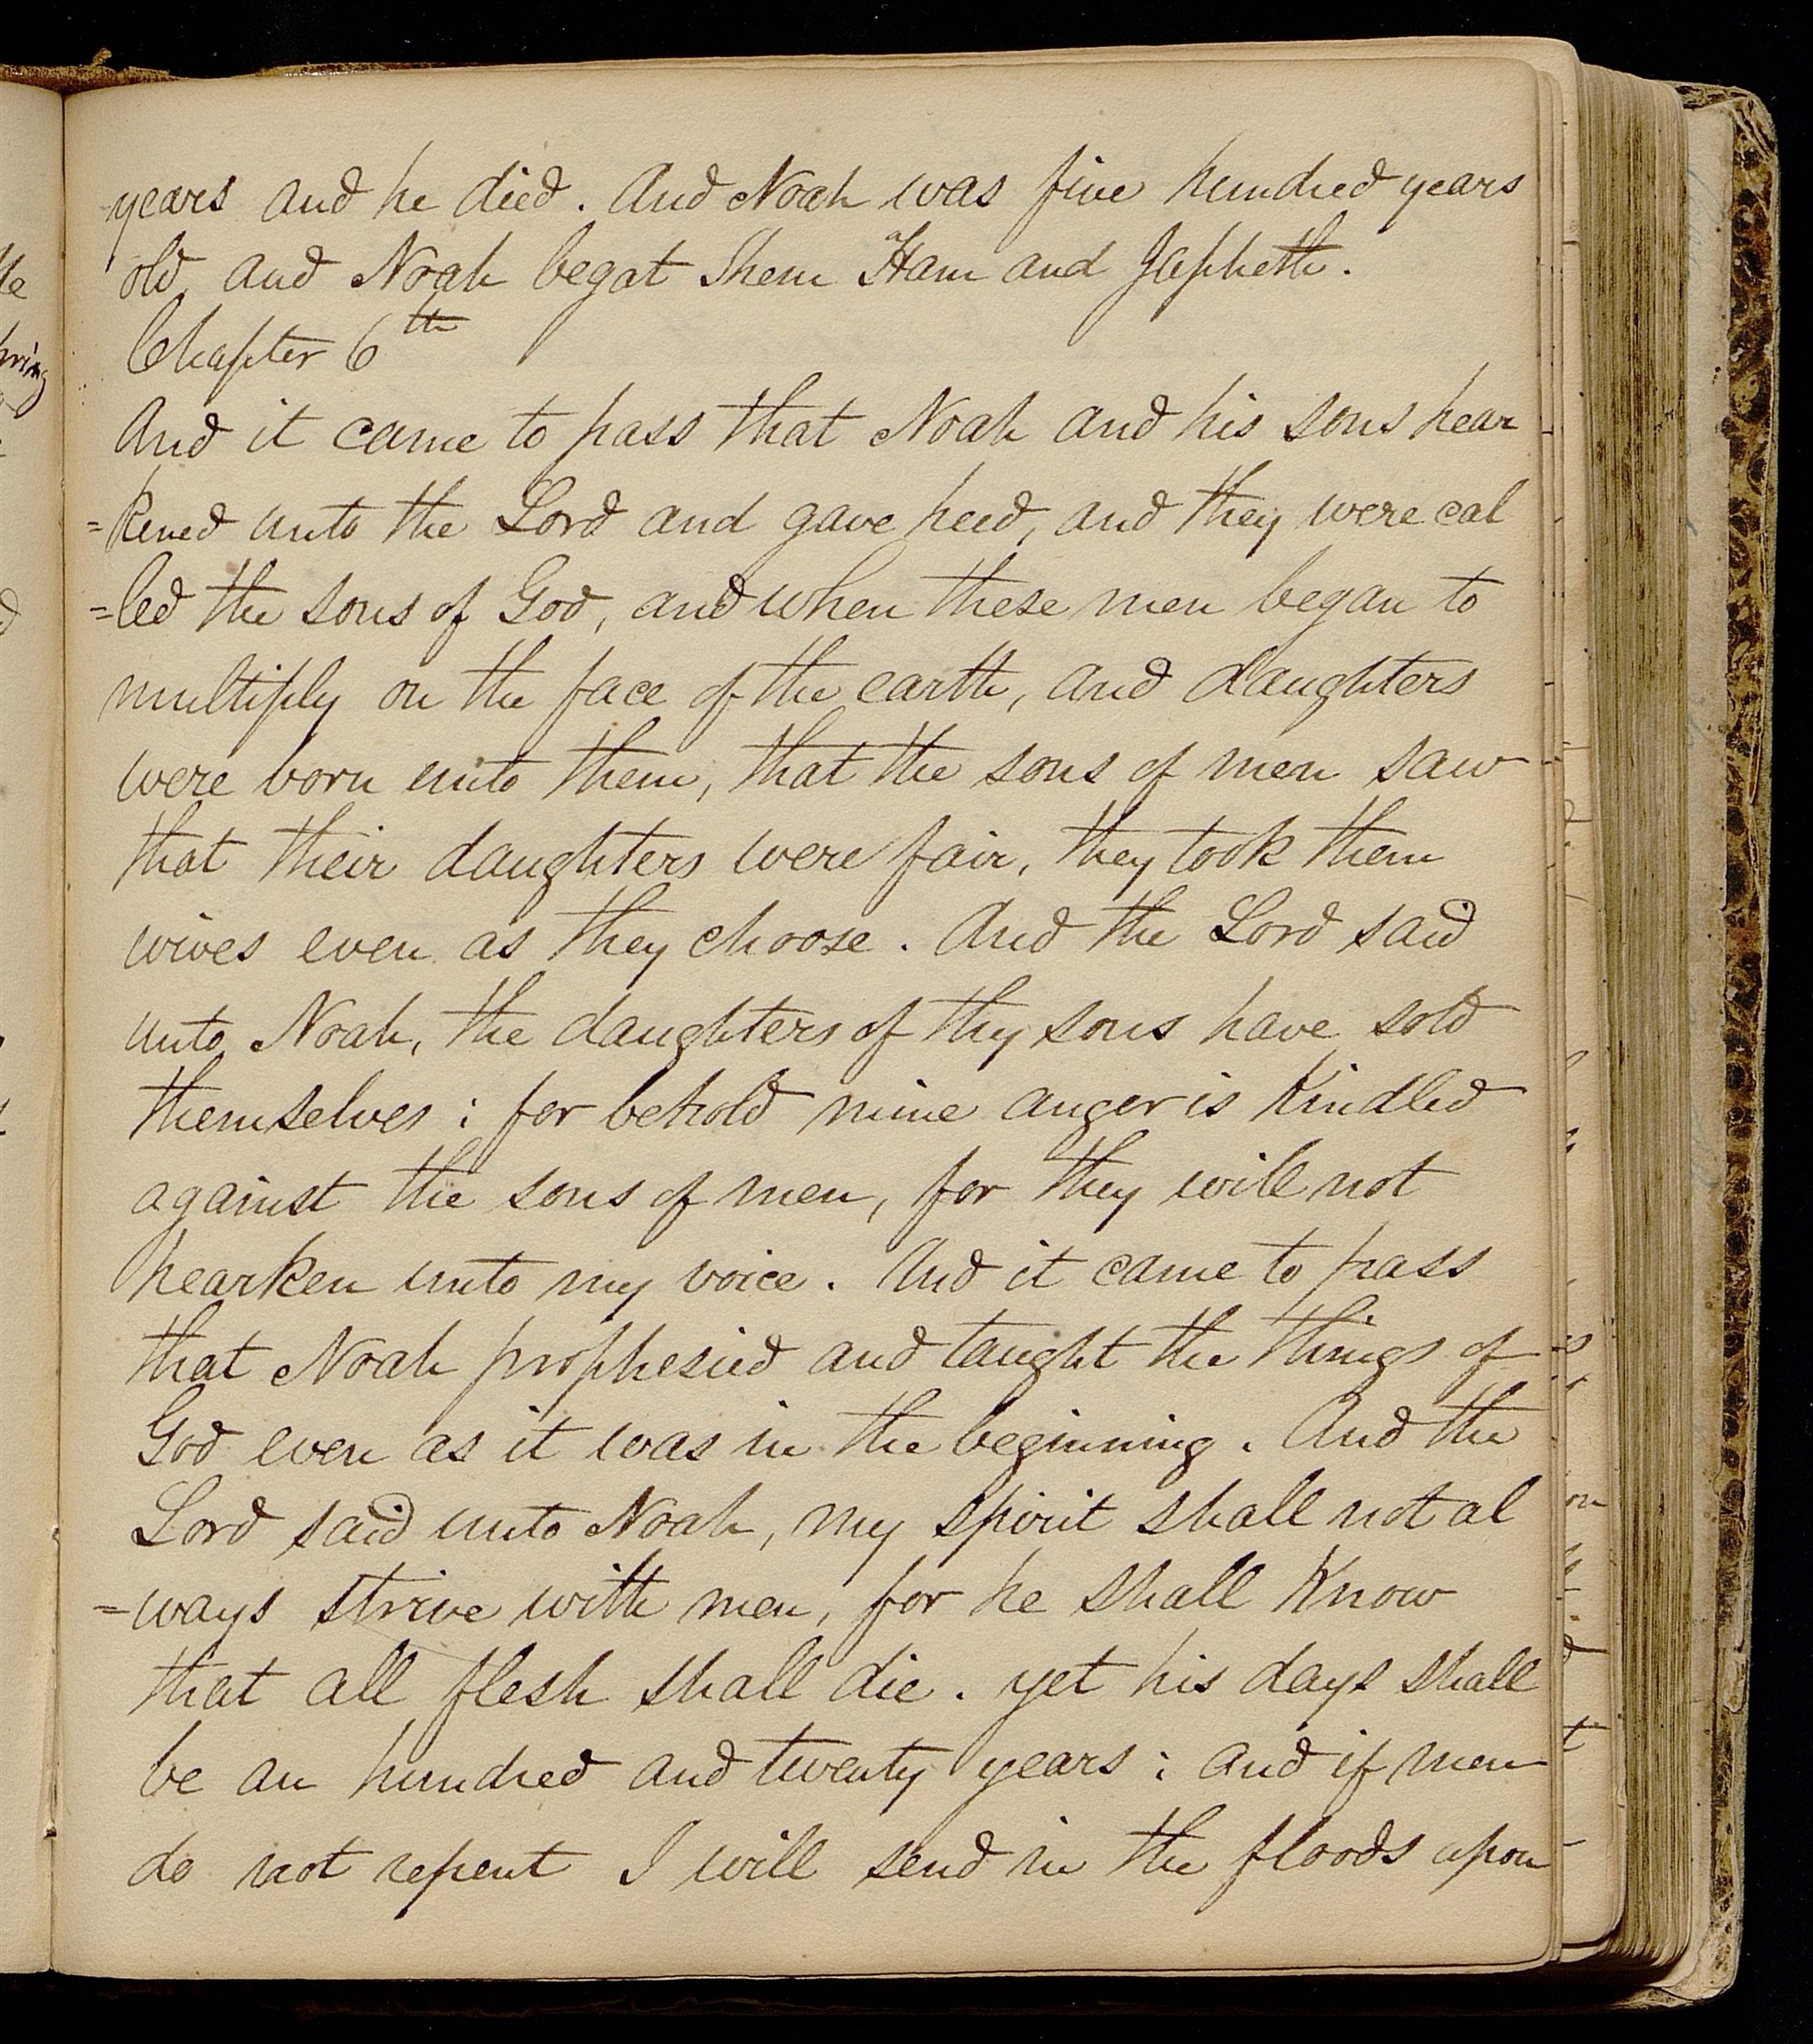 years and he died. And Noah was five hundred years
old, and Noah begat Shem Ham and Japheth.
Chapter 6th
And it came to pass that Noah and his sons hear
=kened unto the Lord and gave heed, and they were cal
=led the sons of God, and when these men began to
multiply on the face of the earth, and daughters
were born unto them, that the sons of men saw
that their daughters were fair, they took them
wives even as they choose. And the Lord said
unto Noah, the daughters of thy sons have sold
themselves; for behold mine anger is kindled
against the sons of men, for they will not
hearken unto my voice. And it came to pass
that Noah prophesied and taught the things of
God even as it was in the beginning. And the
Lord said unto Noah, my spirit shall not al
=ways strive with men, for he shall know
that all flesh shall die. yet his days shall
be an hundred and twenty years; and if men
do not repent I will send in the floods upon